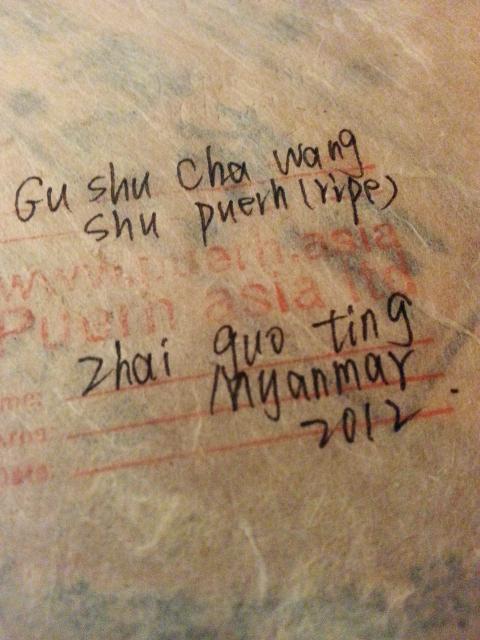 Gu shu cha wang
shu puerh (ripe)
www.puerh.asia
Puerh asia ltd
Zhai guo ting
me:
Myanmar
Area:
2012.
Date: